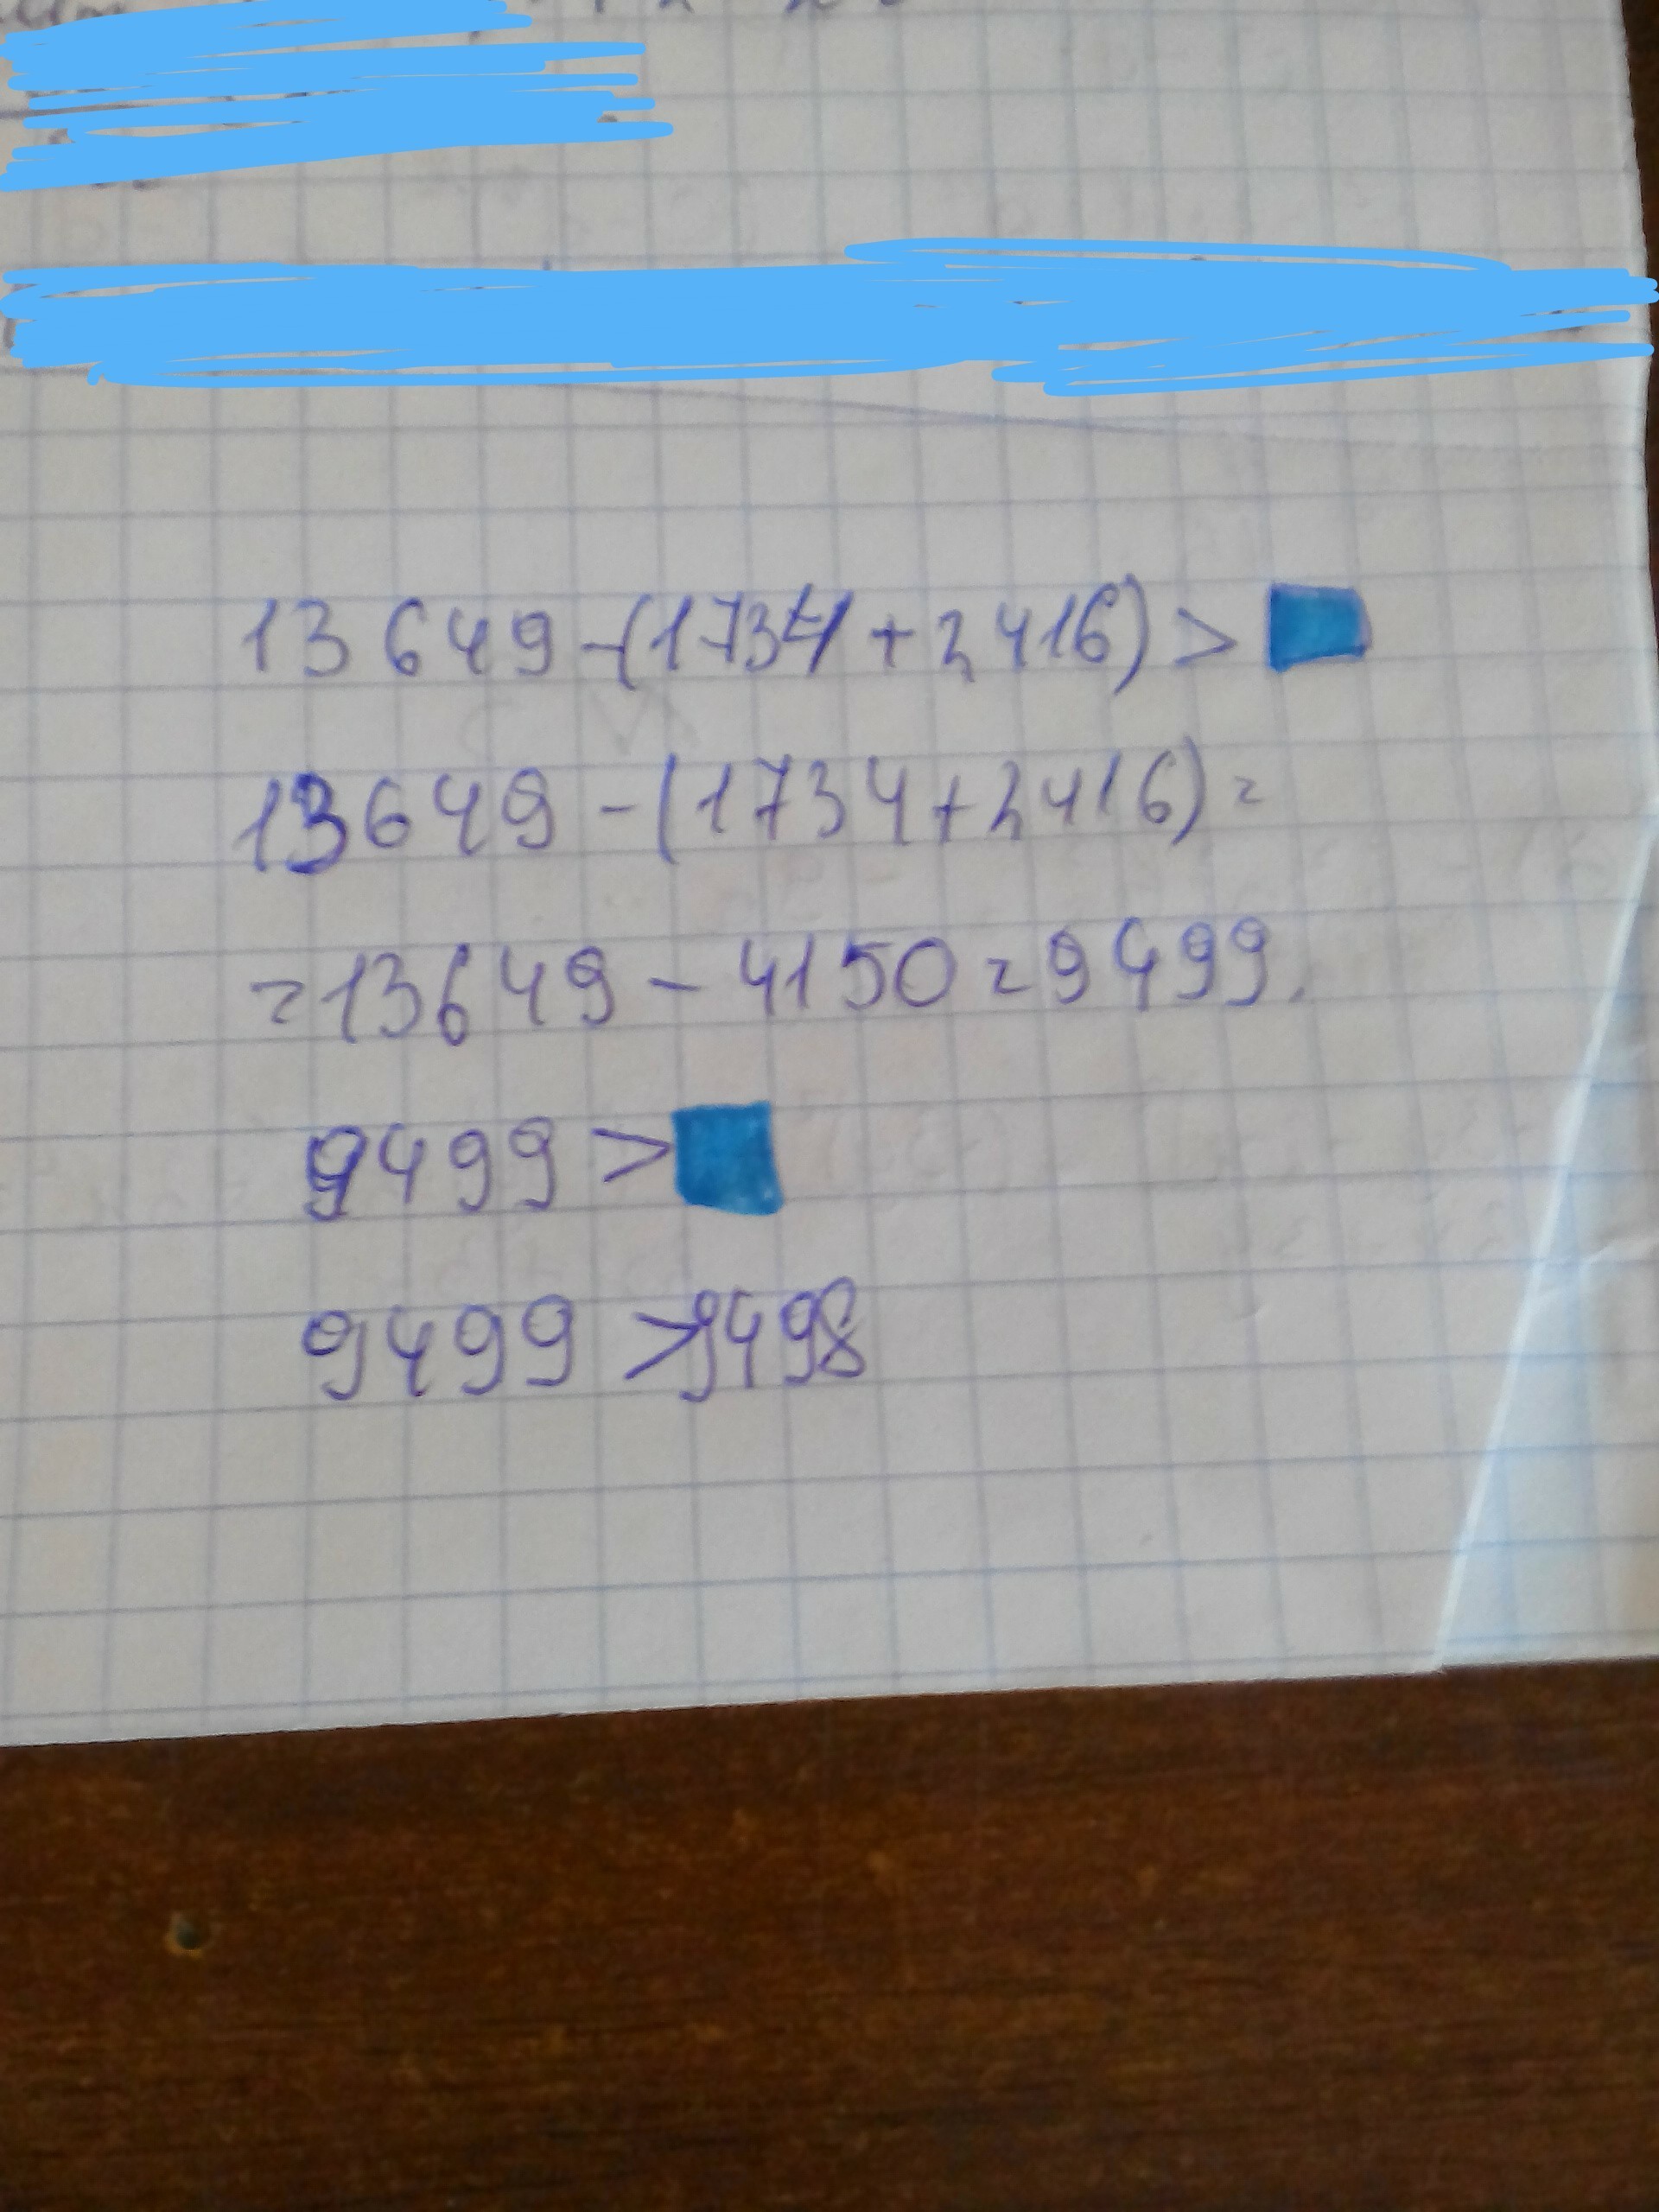 13 649 - (1734 + 2 416) >
13649 - (1734 + 2416) =
= 13649 - 4150 = 9499.
9499 >
9499 > 9498